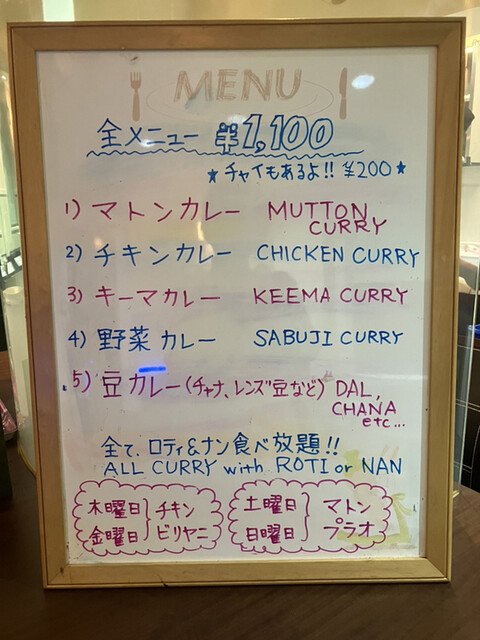 MENU
全メニュー ¥1,100
★チャイもあるよ!! ¥200★
1) マトンカレー MUTTON CURRY
2) チキンカレー CHICKEN CURRY
3) キーマカレー KEEMA CURRY
4) 野菜カレー SABUJI CURRY
5) 豆カレー(チャナ、レンズ豆など) DAL, CHANA etc...
全て、ロティ&ナン食べ放題!!
ALL CURRY with ROTI or NAN
木曜日 金曜日 } チキンビリヤニ
土曜日 日曜日 } マトンプラオ